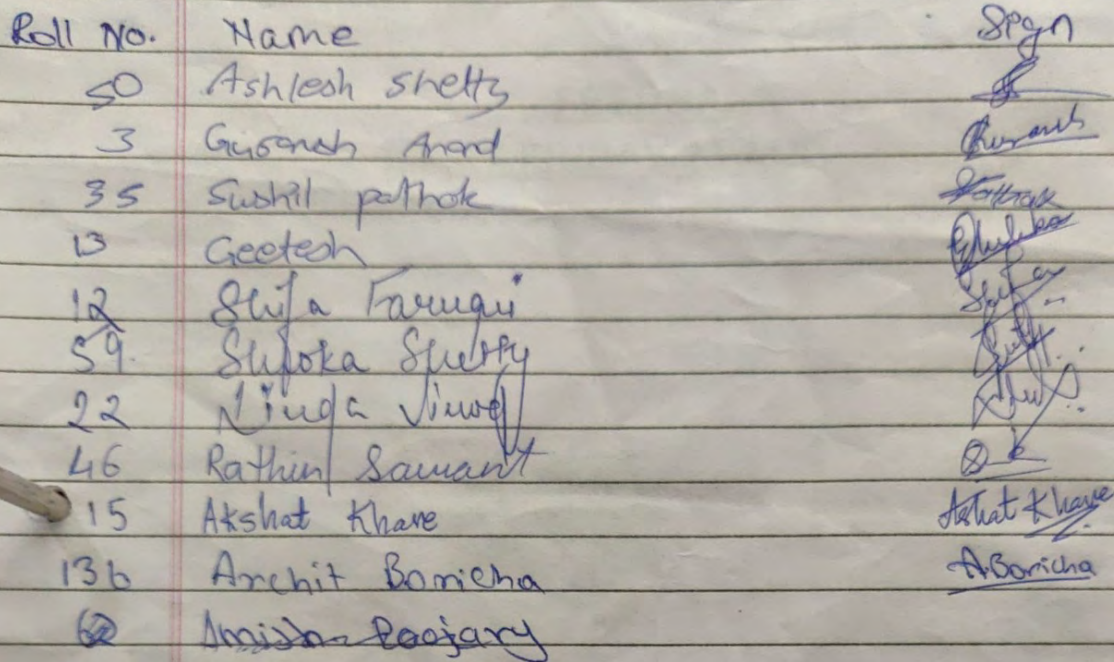 Roll No. Name Sign
50 Ashlesh Shetty
3 Guransh Anand Guransh
35 Sushil pathak Pathak
13 Geetesh
12 Shifa Faruqui Shifa
59 Shloka Shetty
22 Vinod
46 Rathin Sawant
15 Akshat Khare Akshat Khare
136 Archit Boricha A Boricha
Amish Poojary